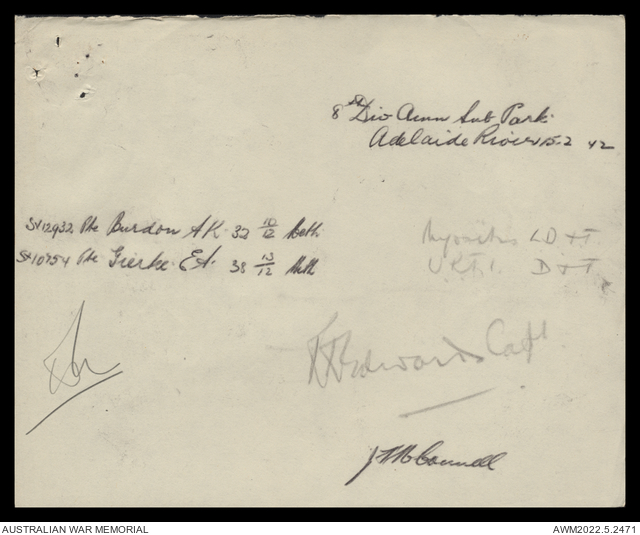 8th Div Amm Sub Park
Adelaide River 15-2 42
SX12932 Pte Burdon A K 32 10/12 Meth Myositis LD+T
SX10754 Pte Gierke E A 38 13/12 Meth URTI. D+T
Edwards Capt
J T McConnell
AUSTRALIAN WAR MEMORIAL
AWM2022.5.2471